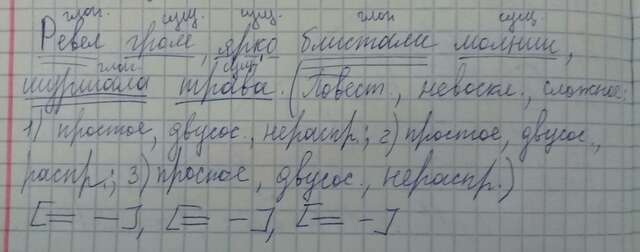 глаг. сущ. сущ. глаг сущ.
Ревел гром, ярко блистали молнии,
глаг сущ.
шуршала трава. (Повест., невоскл., сложное;
1) простое, двусос., нераспр.; 2) простое, двусос.,
распр.; 3) простое, двусос., нераспр.)
[= –], [= –], [= –]